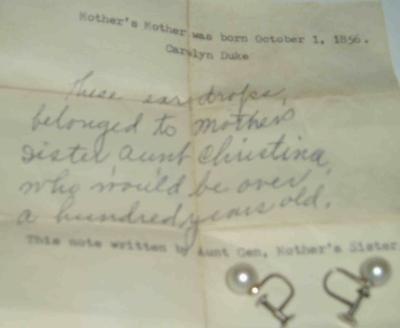 Mother's Mother was born October 1, 1856.
Carolyn Duke
These ear drops,
belonged to mothers
sister aunt Christina,
who would be over
a hundred years old.
This note written by Aunt Gen, Mother's Sister